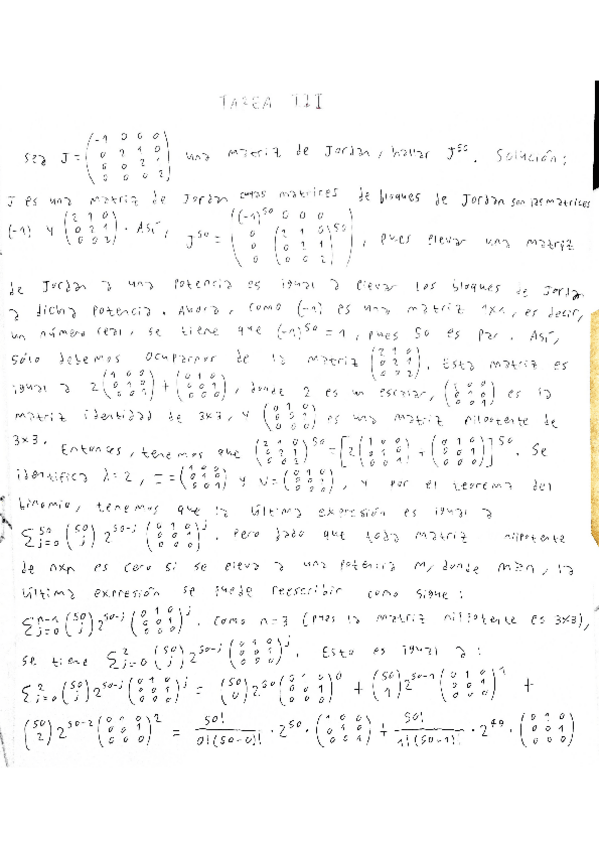 TAREA III
Sea J = (-1 0 0 0 / 0 2 1 0 / 0 0 2 1 / 0 0 0 2) una matriz de Jordan, hallar J^50. Solución:
J es una matriz de Jordan cuyas matrices de bloques de Jordan son las matrices
(-1) y (2 1 0 / 0 2 1 / 0 0 2). Así, J^50 = ((-1)^50 0 0 0 / 0 / 0 / 0 (2 1 0 / 0 2 1 / 0 0 2)^50), pues elevar una matriz
de Jordan a una potencia es igual a elevar los bloques de Jordan
a dicha potencia. Ahora, como (-1) es una matriz 1x1, es decir,
un número real, se tiene que (-1)^50 = 1, pues 50 es par. Así,
sólo debemos ocuparnos de la matriz (2 1 0 / 0 2 1 / 0 0 2). Esta matriz es
igual a 2(1 0 0 / 0 1 0 / 0 0 1) + (0 1 0 / 0 0 1 / 0 0 0), donde 2 es un escalar, (1 0 0 / 0 1 0 / 0 0 1) es la
matriz identidad de 3x3, y (0 1 0 / 0 0 1 / 0 0 0) es una matriz nilpotente de
3x3. Entonces, tenemos que (2 1 0 / 0 2 1 / 0 0 2)^50 = [2(1 0 0 / 0 1 0 / 0 0 1) + (0 1 0 / 0 0 1 / 0 0 0)]^50. Se
identifica λ=2, I=(1 0 0 / 0 1 0 / 0 0 1) y N=(0 1 0 / 0 0 1 / 0 0 0), y por el teorema del
binomio, tenemos que la última expresión es igual a
Σ_{j=0}^{50} (50 / j) 2^{50-j} (0 1 0 / 0 0 1 / 0 0 0)^j. Pero dado que toda matriz nilpotente
de nxn es cero si se eleva a una potencia m, donde m≥n, la
última expresión se puede reescribir como sigue:
Σ_{j=0}^{n-1} (50 / j) 2^{50-j} (0 1 0 / 0 0 1 / 0 0 0)^j. Como n=3 (pues la matriz nilpotente es 3x3),
se tiene Σ_{j=0}^{2} (50 / j) 2^{50-j} (0 1 0 / 0 0 1 / 0 0 0)^j. Esto es igual a:
Σ_{j=0}^{2} (50 / j) 2^{50-j} (0 1 0 / 0 0 1 / 0 0 0)^j = (50 / 0) 2^50 (0 1 0 / 0 0 1 / 0 0 0)^0 + (50 / 1) 2^{50-1} (0 1 0 / 0 0 1 / 0 0 0)^1 +
(50 / 2) 2^{50-2} (0 1 0 / 0 0 1 / 0 0 0)^2 = 50!/0!(50-0)! · 2^50 · (1 0 0 / 0 1 0 / 0 0 1) + 50!/1!(50-1)! · 2^49 · (0 1 0 / 0 0 1 / 0 0 0)